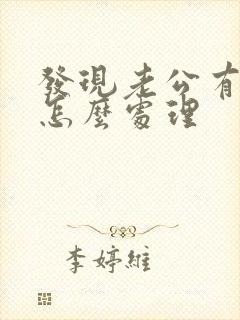 發現老公有
怎麼處理
李婷維